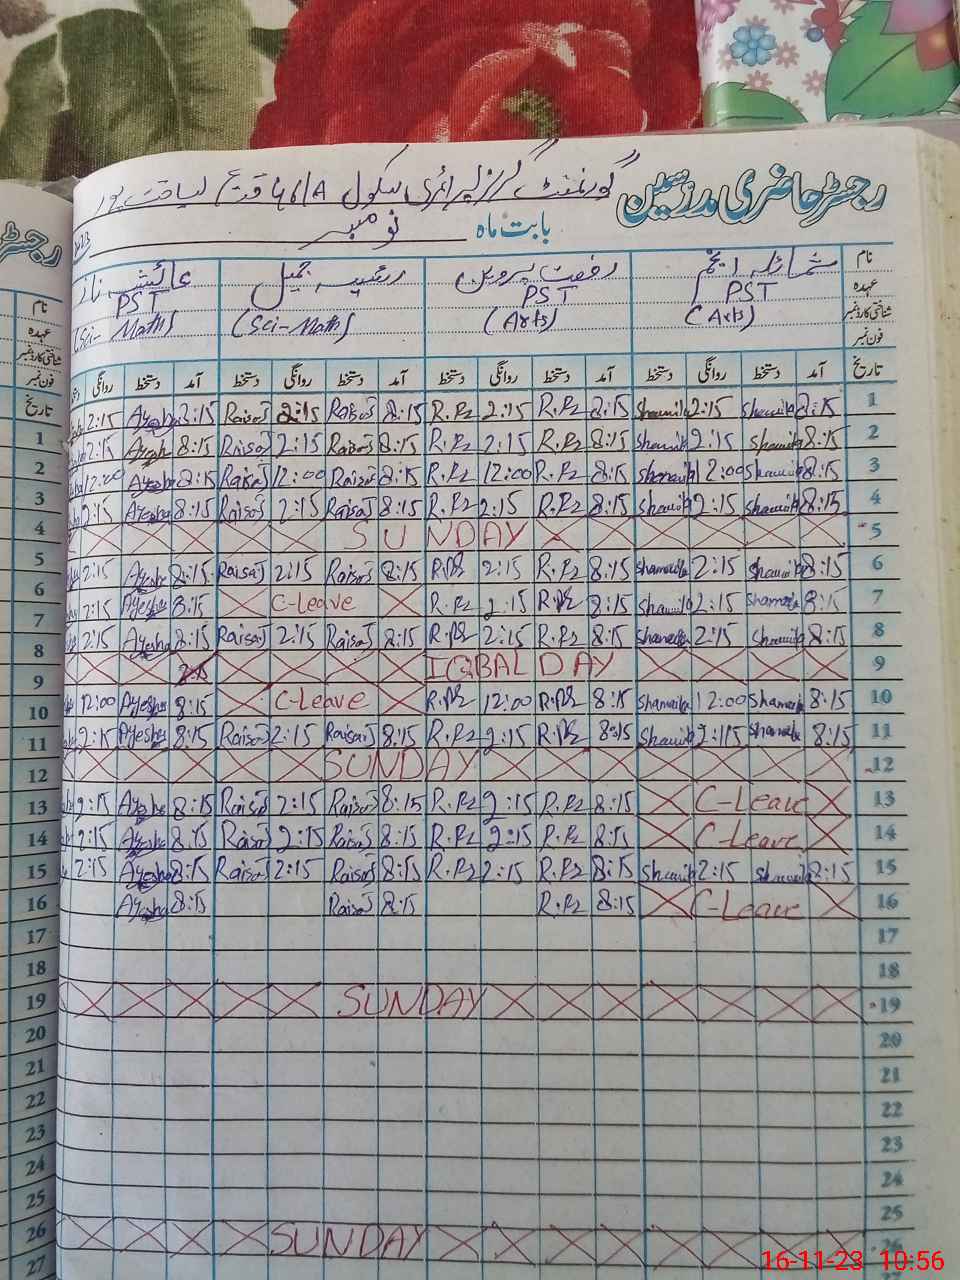 رجسٹر حاضری مدرسین
گورنمنٹ گرلز پرائمری سکول لیاقت پور
بابت ماہ نومبر
نام شمائلہ انجم رفعت پروین رئیسہ جمیل عائشہ ناز
عہدہ PST PST PST
شناختی کارڈ نمبر (Arts) (Arts) (Sci-Math) (Sci-Math)
فون نمبر
تاریخ آمد دستخط روانگی دستخط آمد دستخط روانگی دستخط آمد دستخط روانگی دستخط آمد دستخط روانگی
2:15 Ayesha 8:15 RaisaJ 2:15 RaisaJ 8:15 R.Pz 2:15 R.Pz 8:15 Shamila 2:15 Shamila 8:15 1
1 2:15 Ayesha 8:15 RaisaJ 2:15 RaisaJ 8:15 R.Pz 2:15 R.Pz 8:15 Shamila 2:15 Shamila 8:15 2
2 12:00 Ayesha 8:15 RaisaJ 12:00 RaisaJ 8:15 R.Pz 12:00 R.Pz 8:15 Shamaila 12:00 Shamila 8:15 3
3 2:15 Ayesha 8:15 RaisaJ 2:15 RaisaJ 8:15 R.Pz 2:15 R.Pz 8:15 Shamila 2:15 Shamila 8:15 4
4 SUNDAY 5
5 2:15 Ayesha 8:15 RaisaJ 2:15 RaisaJ 8:15 R.Pz 2:15 R.Pz 8:15 Shamaila 2:15 Shamila 8:15 6
6 2:15 Ayesha 8:15 C-Leave R.Pz 2:15 R.Pz 8:15 Shamila 2:15 Shamaila 8:15 7
7 2:15 Ayesha 8:15 RaisaJ 2:15 RaisaJ 8:15 R.Pz 2:15 R.Pz 8:15 Shamaila 2:15 Shamila 8:15 8
8 IQBAL DAY 9
9 12:00 Ayesha 8:15 C-Leave R.Pz 12:00 R.Pz 8:15 Shamaila 12:00 Shamaila 8:15 10
10 2:15 Ayesha 8:15 RaisaJ 2:15 RaisaJ 8:15 R.Pz 2:15 R.Pz 8:15 Shamila 2:15 Shamaila 8:15 11
11 SUNDAY 12
12 2:15 Ayesha 8:15 RaisaJ 2:15 RaisaJ 8:15 R.Pz 2:15 R.Pz 8:15 C-Leave 13
13 2:15 Ayesha 8:15 RaisaJ 2:15 RaisaJ 8:15 R.Pz 2:15 R.Pz 8:15 C-Leave 14
14 2:15 Ayesha 8:15 RaisaJ 2:15 RaisaJ 8:15 R.Pz 2:15 R.Pz 8:15 Shamila 2:15 Shamila 8:15 15
15 Ayesha 8:15 RaisaJ 8:15 R.Pz 8:15 C-Leave 16
16 17
17 18
18 SUNDAY 19
19 20
20 21
21 22
22 23
23 24
24 25
25 SUNDAY 26
26
27
16-11-23 10:56